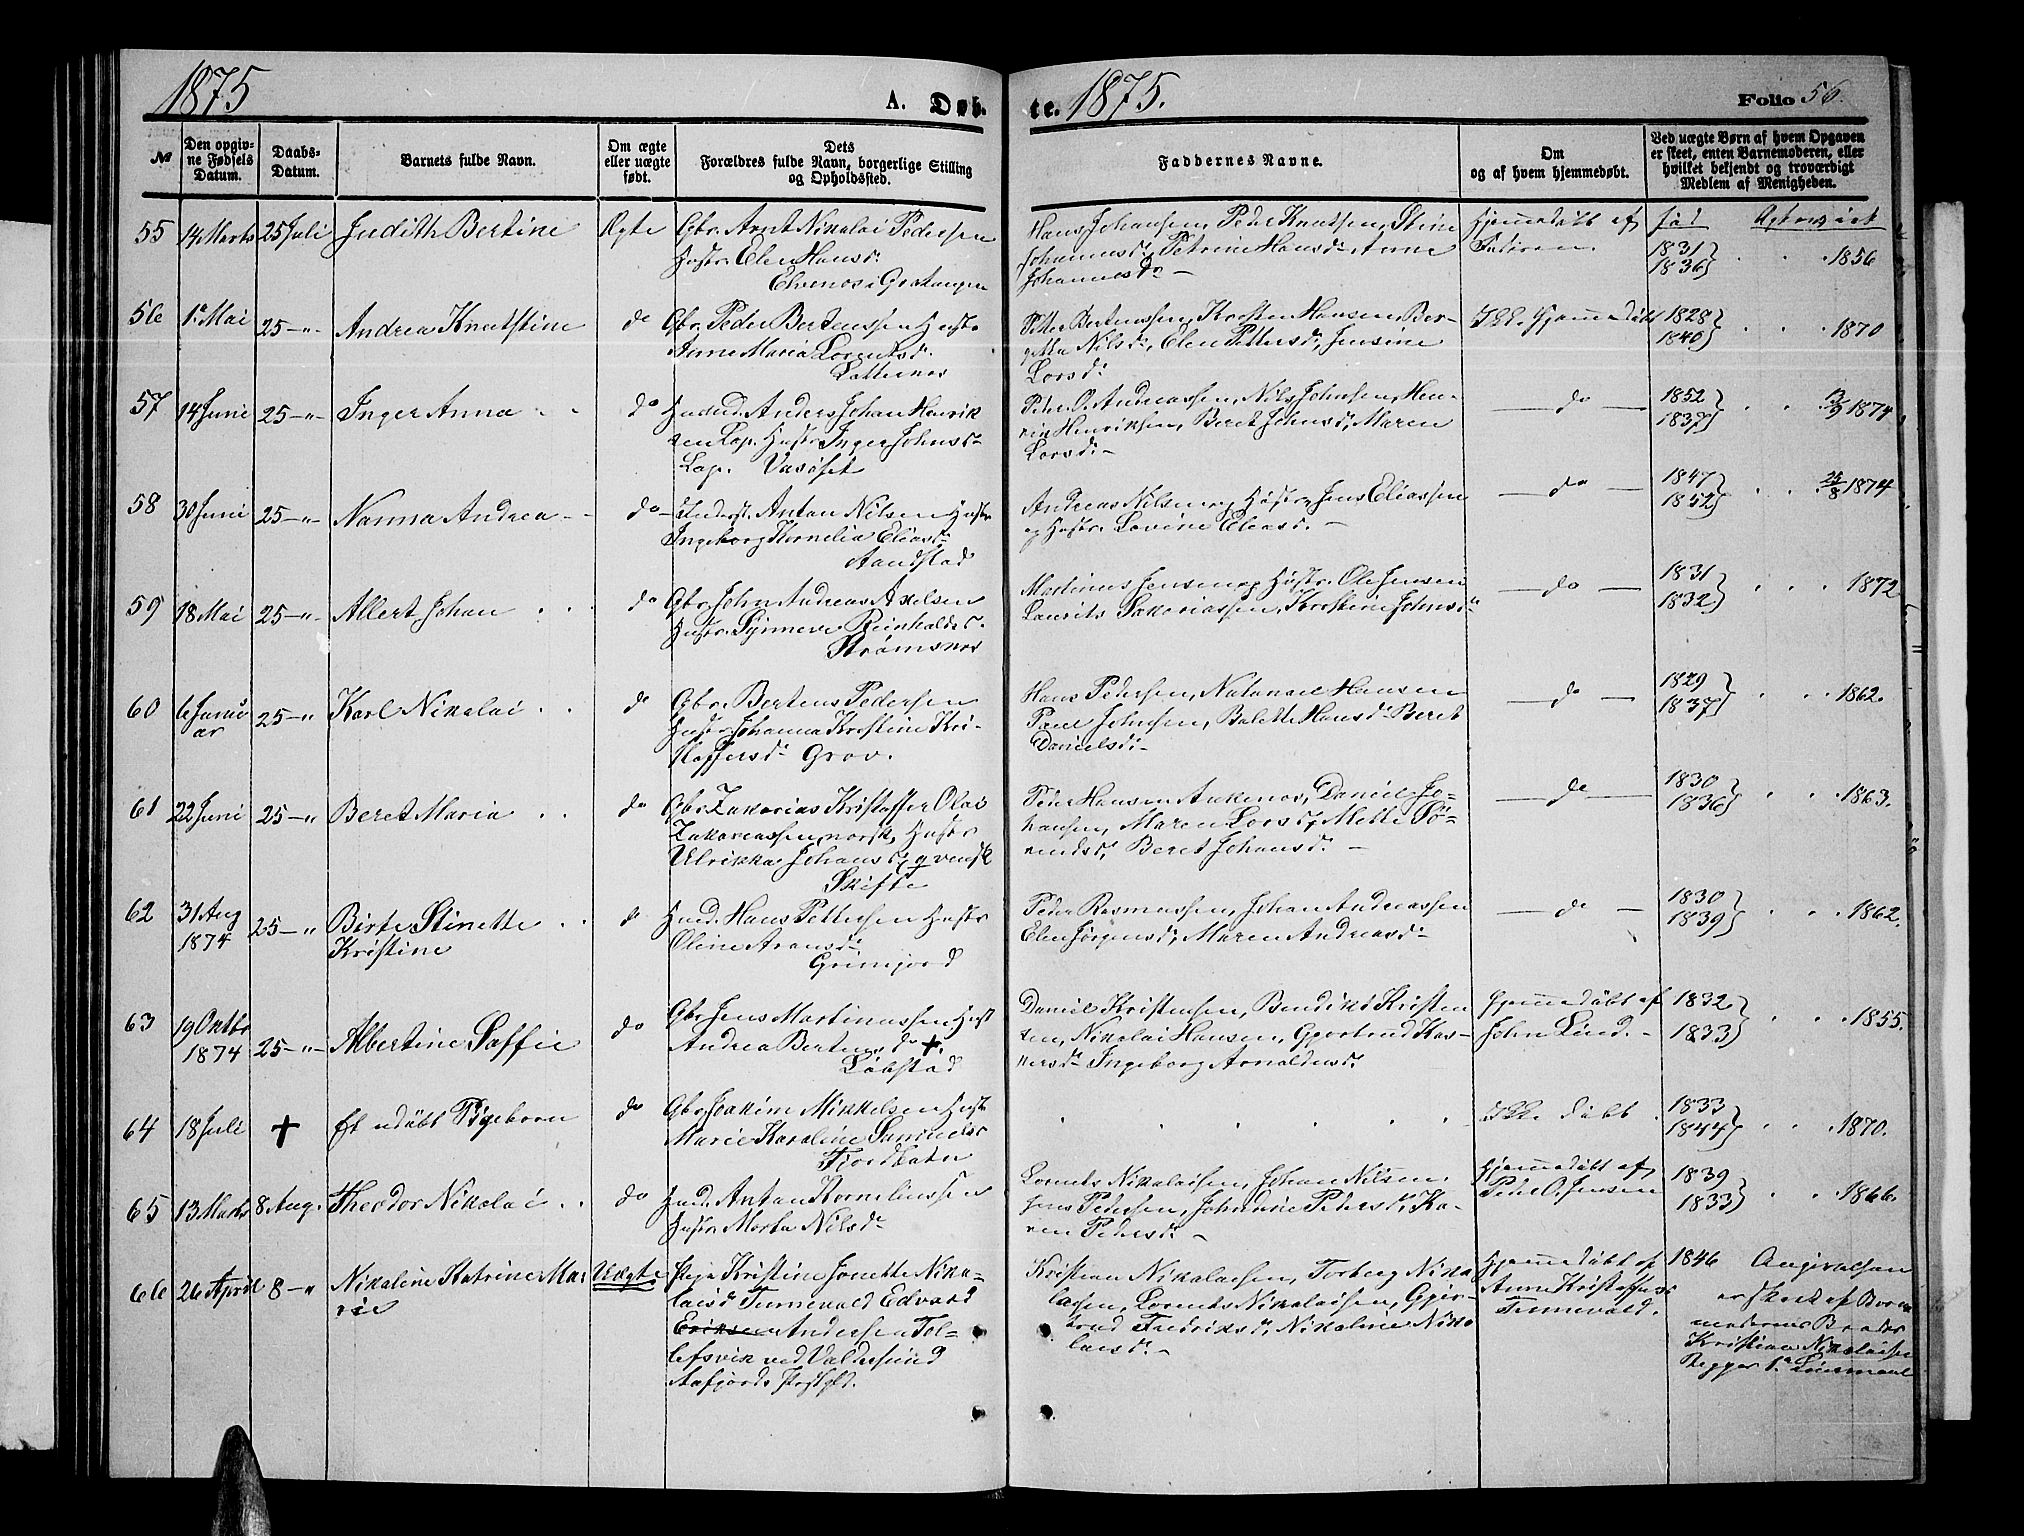 1875
A. Døb-
te. 1875.
Folio 56.
№
Den opgiv-
ne Fødsels
Datum.
Daabs-
Datum.
Barnets fulde Navn.
Om ægte
eller uægte
født.
Dets
Forældres fulde Navn, borgerlige Stilling
og Opholdssted.
Faddernes Navne.
Om
og af hvem hjemmedøbt.
Ved uægte Børn af hvem Opgaven
er skeet, enten Barnemoderen, eller
hvilket bekjendt og troværdigt
Medlem af Menigheden.
55 14 Marts 25 Juli Judith Bertine Ægte
Gbr. Arnt Nikolai Pedersen
Hustr. Elen Hansd:
Elvenes i Gratangen
Hans Johansen, Peder Knutsen, Stine
Johannesd: Petrine Hansd: Anne
Johannesd: –
Hjemmedøbt af
Faderen.
fød
1831
1836 1856
56 1ᵉ Mai 25 –"– Andrea Knutstine do
Gbr. Peder Berteussen Hustr.
Anne Maria Lorentsd.
Petter Berteussen, Hansen, Ber-
Nilsd:, Elen Pettersd:, Jensine
Larsd:
Ikke Hjemmedøbt
1828
1840 1870
57 14 Juni 25 –"– Inger Anna do
Anders Johan Henrik
sen Lap. Hustr. Inger Johnsd:
Lap. Vasöset
Peder O. Andreassen, Nils Johnsen, Hen-
rik Henriksen, Beret Johnsd:, Maren
Larsd: –
– do –
1852
1837 1874
58 30 Juni 25 –"– Nanna Andrea do
Anton Nilsen Hustr
Ingeborg Kornelia Eliasd:
Aandstad
Andreas Nilsen og Hustr, Jens Eliassen
og Hustr. Lovine Eliasd. –
– do –
1847
1852 1874
59 18 Mai 25 –"– Albert Johan do
Gbr. John Andreas Axelsen
Hustr. Synneve Reinholdtsd.
Strömsnes
Martinus Jensen og Hustr. Ole Jensen
Laurits Sakariassen, Johnsd:
– do –
1831
1832 1872
60 6 Janu
ar 25 –"– Karl Nikolai do
Gbr. Berteus Pedersen
Hustr. Johanna Kristine Kri-
stoffersd: Grov.
Hans Pedersen, Natanael Hansen
Paul Johnsen, Balette Hansd: Beret
Danielsd: –
– do –
1829
1837 1862.
61 22 Juni 25 –"– Beret Maria do
Gbr. Zakarias Kristoffer Olai
Zakariassen, norsk, Hustr
Ulrikka Johansd:, qvensk
Skifte
Peder Hansen, Daniel Jo-
hansen, Maren Larsd:, Mette Sö-
rensd:, Beret Johansd: –
– do –
1830
1836 1863.
62 31 Aug
1874 25 –"– Birte Stinette
Kristine do
Hans Pettersen Hustr
Oline Aronsd:
Grimjord
Peder Rasmussen, Johan Andreassen
Elen Jörgensd:, Maren Andreasd: –
– do –
1830
1839 1862.
63 19 Oktbr
1874 25 –"– Albertine Soffie do
Gbr. Jens Martinussen Hust
Andrea Berteusd: +.
Löbstad
Daniel Kristensen, Bendikt Kristen
sen, Nikolai Hansen, Gjertrud Kas-
persd: Ingeborg Arnoldusd:
Hjemmedøbt af
John Lind. –
1832
1833 1855.
64 18 Juli + Et udöbt Pigebarn do
Gbr. Joakim Mikkelsen Hustr
Marie Karoline Samuelsd
Fjordbotn
Ikke døbt
1833
1844 1870.
65 13 Marts 8 Aug. Theodor Nikolai do
Anton Korneliussen
Hustr. Marta Nilsd:
Lorents Nikolaisen, Johan Nilsen
Jens Pedersen, Johanne Pedersd:, Ka-
ren Pedersd: –
Hjemmedøbt af
Peder O. Jensen
1839
1833 1866.
66 26 April 8 –"– Nikoline Katrine Ma
rie Uægte
Pige Kristine Jonette Niko-
laisd: Tennevold Edvard
Eriksen Andersen Tol-
lefsvik ved Valdersund
Aafjords Prstgld.
Kristian Nikolaisen, Torberg Niko
laisen, Lorents Nikolaisen, Gjer-
trud Fredriksd:, Nikoline Niko
laisd: –
Hjemmedøbt af
Anne Kristoffersd
Tennevold.
1846 Angivelsen
er skeet af Barne
moderens Broder
Kristian Nikolaisen
Begges 1ᵉ Leiermaal